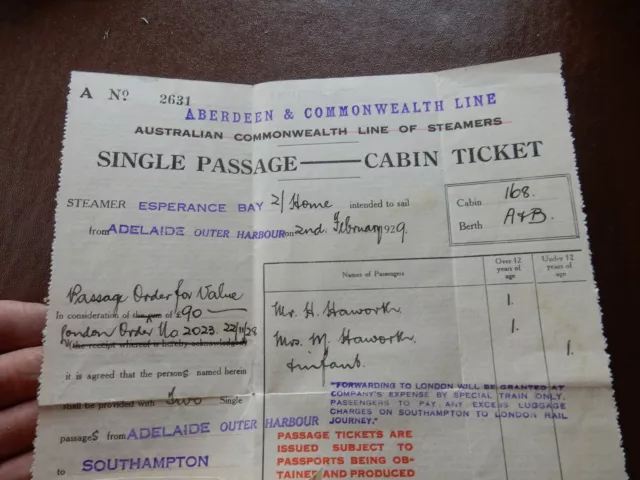 A No 2631
ABERDEEN & COMMONWEALTH LINE
AUSTRALIAN COMMONWEALTH LINE OF STEAMERS
SINGLE PASSAGE — CABIN TICKET
STEAMER ESPERANCE BAY 2/ Home intended to sail
from ADELAIDE OUTER HARBOUR on 2nd. February 1929
Cabin 168.
Berth A & B.
Passage Order for Value
In consideration of the sum of £90 —
London Order No 2023. 22/11/28
(the receipt whereof is hereby acknowledged)
it is agreed that the persons named herein
shall be provided with Two Single
passages from ADELAIDE OUTER HARBOUR
to SOUTHAMPTON
Names of Passengers
Over 12 years of age
Under 12 years of age
Mr. H. Haworth. 1.
Mrs. M. Haworth. 1.
& infant. 1.
"FORWARDING TO LONDON WILL BE GRANTED AT
COMPANY'S EXPENSE BY SPECIAL TRAIN ONLY.
PASSENGERS TO PAY ANY EXCESS LUGGAGE
CHARGES ON SOUTHAMPTON TO LONDON RAIL
JOURNEY."
PASSAGE TICKETS ARE
ISSUED SUBJECT TO
PASSPORTS BEING OB-
TAINED AND PRODUCED